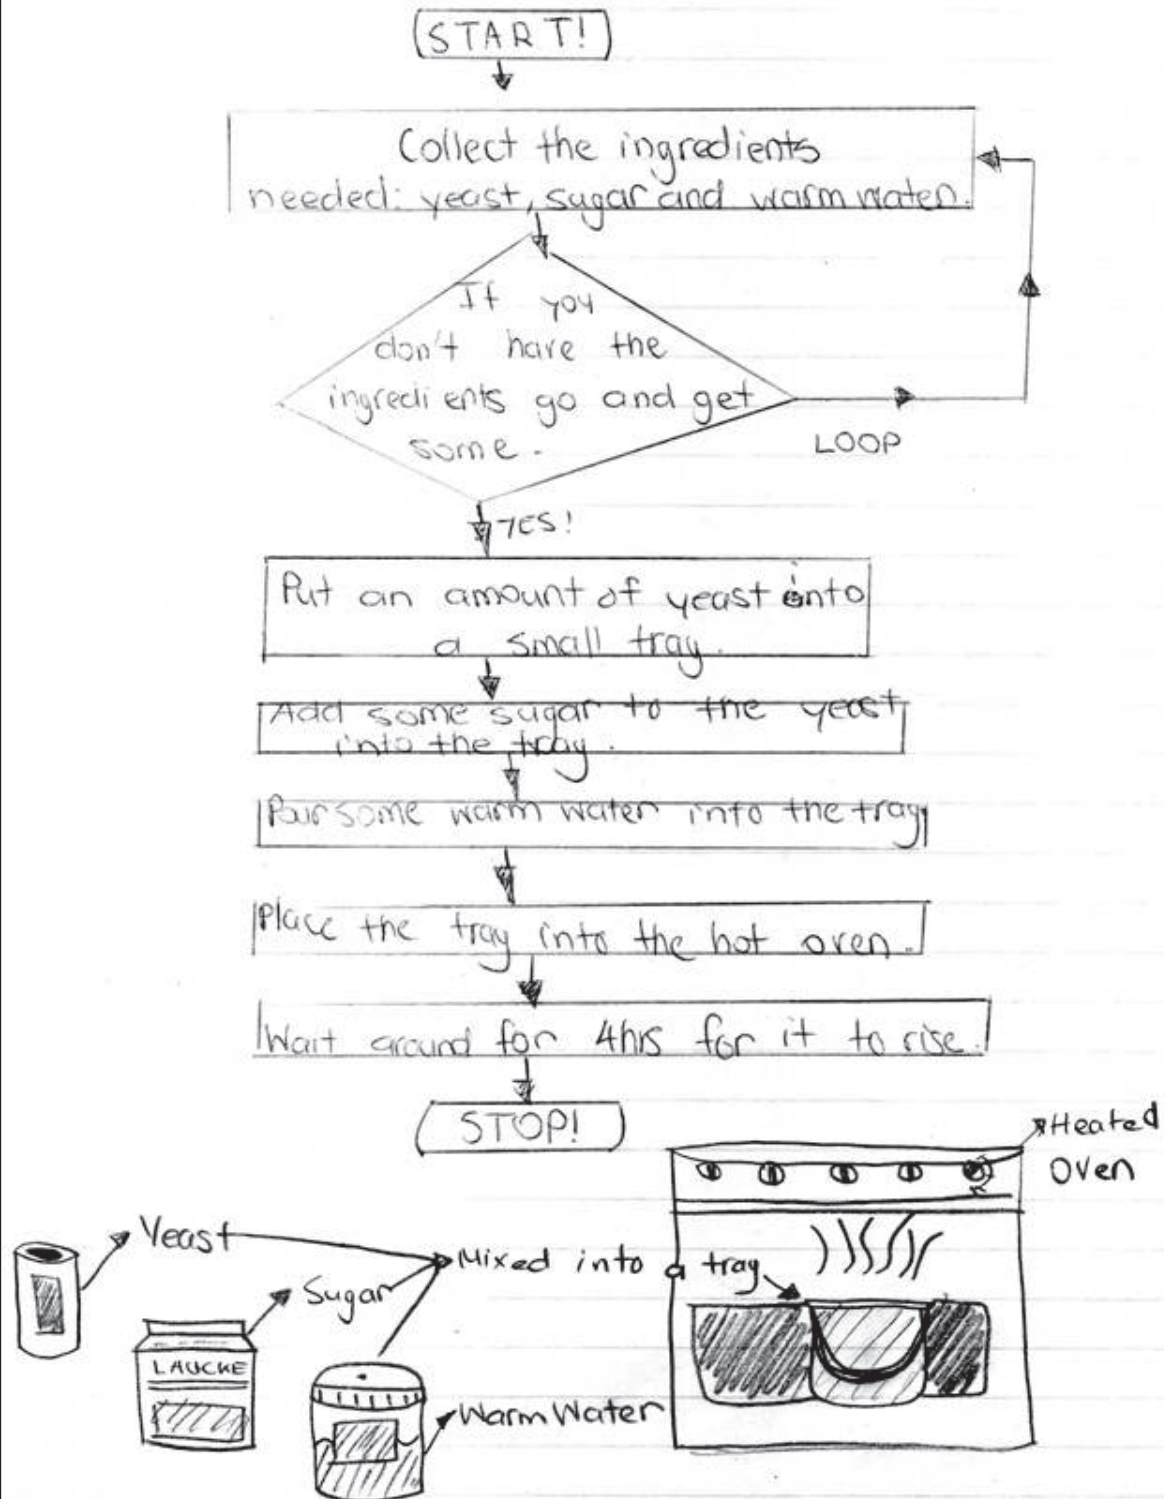 START!
Collect the ingredients
needed: yeast, sugar and warm water.
If you
don't have the
ingredients go and get
some.
LOOP
YES!
Put an amount of yeast into
a small tray.
Add some sugar to the yeast
into the tray.
Pour some warm water into the tray
Place the tray into the hot oven.
Wait around for 4hrs for it to rise.
STOP!
Heated
Oven
Yeast
Mixed into a tray
Sugar
LAUCKE
Warm Water